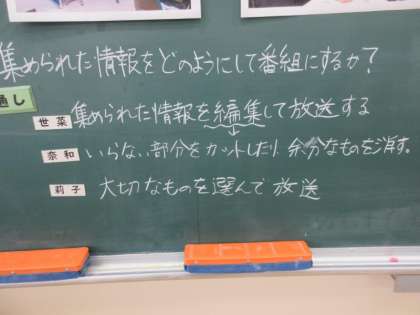 集められた情報をどのようにして番組にするか?
通し
世菜 集められた情報を編集して放送する
奈和 いらない部分をカットしたり、余分なものを消す。
莉子 大切なものを選んで放送